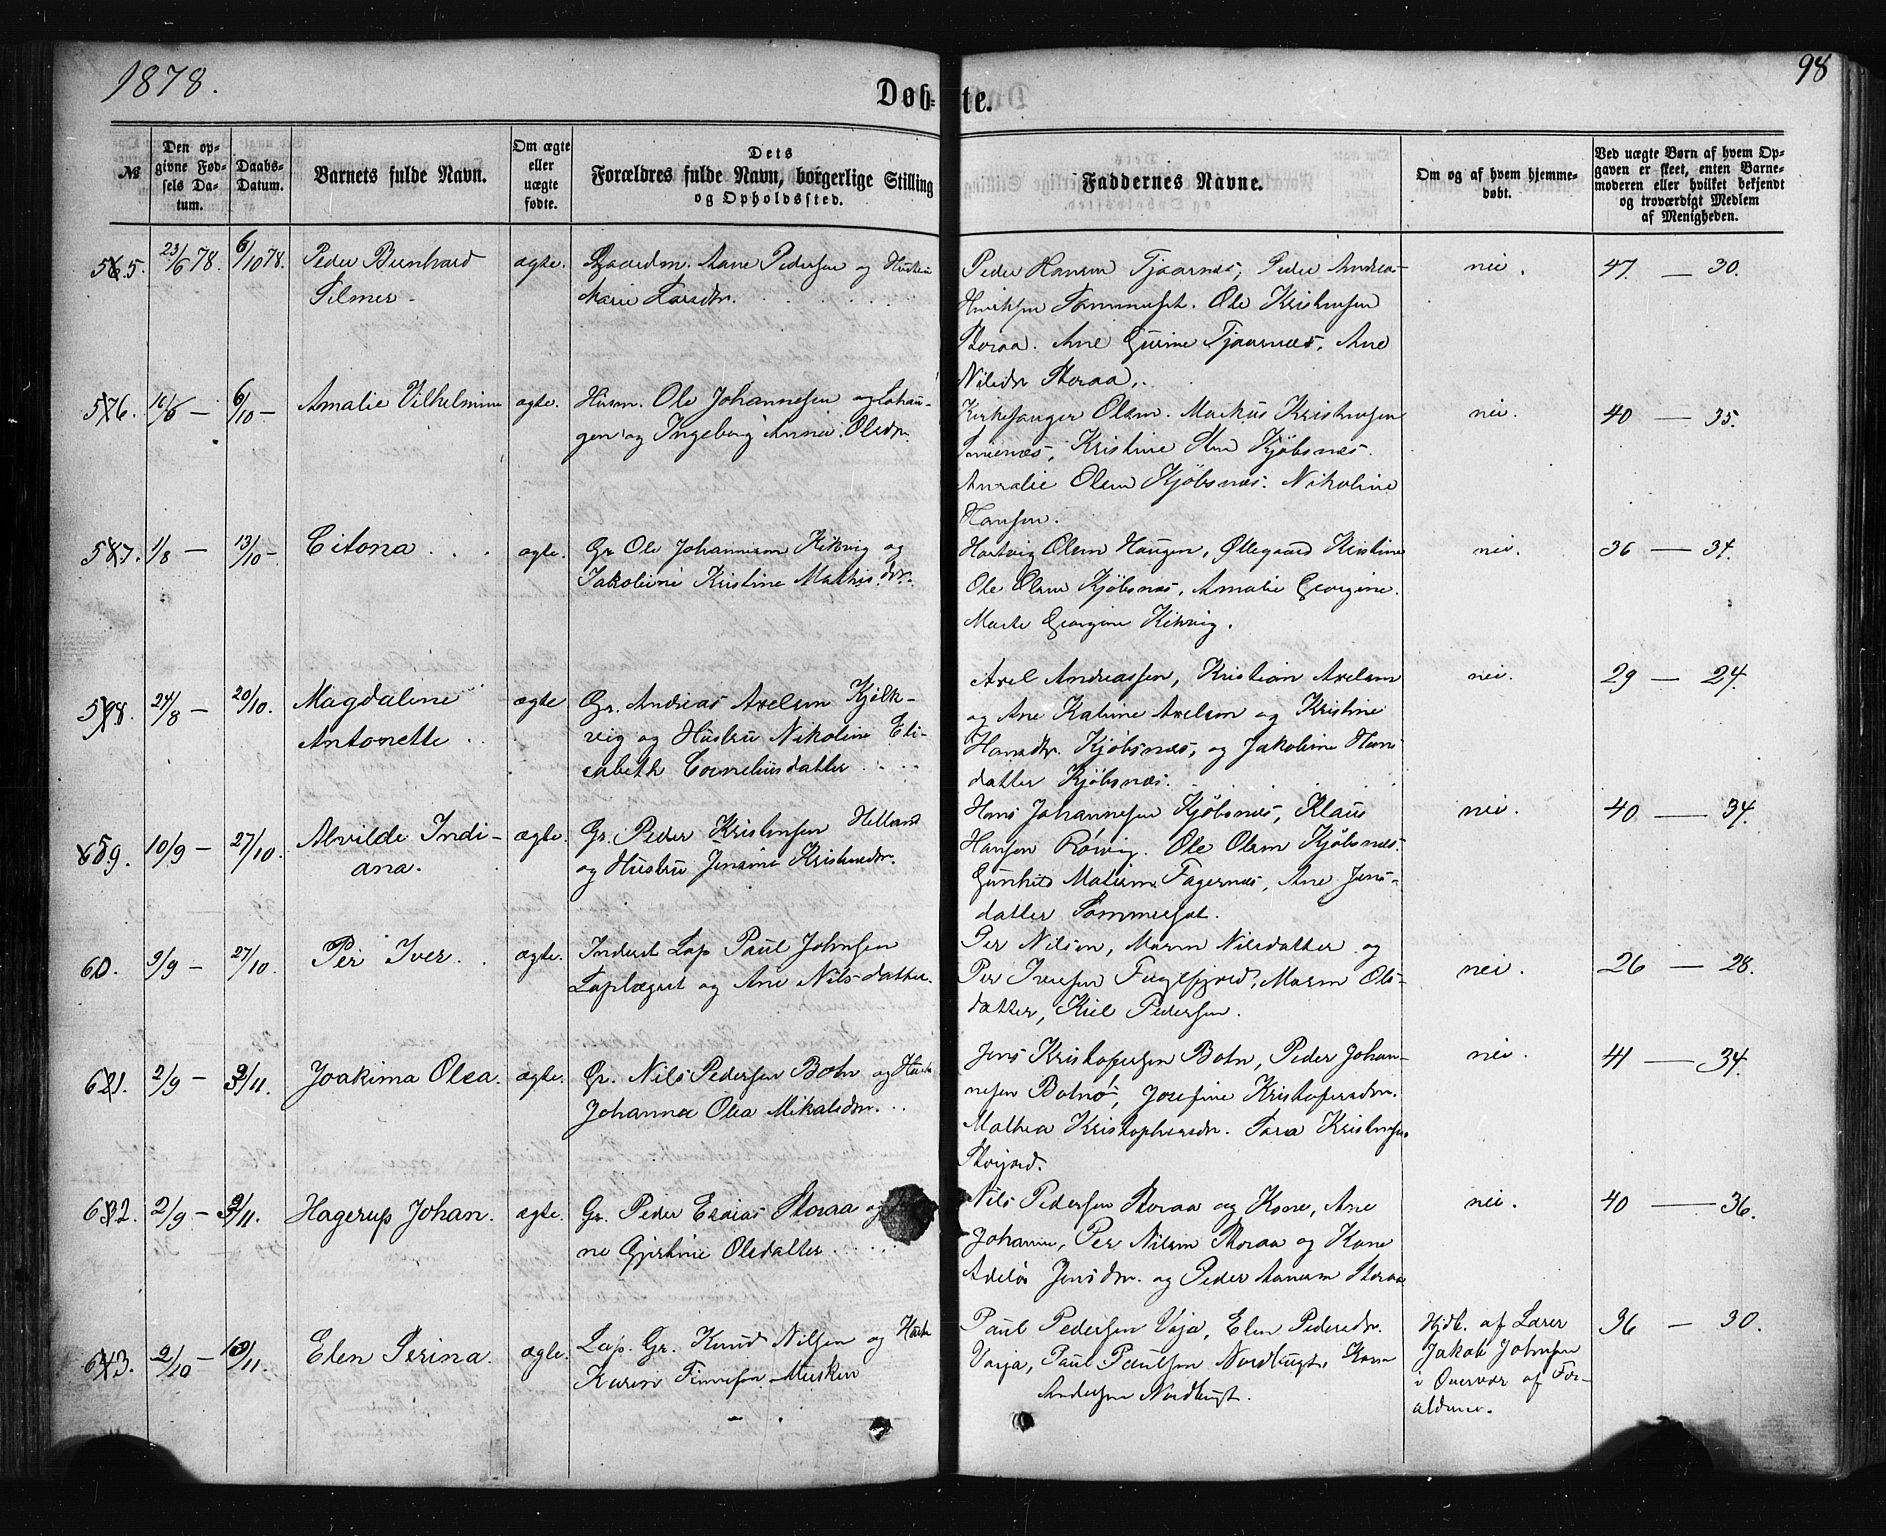 1878.
98
Døb-
te.
№
Den op-
givne Fød-
sels Da-
tum.
Daabs-
Datum.
Barnets fulde Navn.
Om ægte
eller
uægte
fødte.
Dets
Forældres fulde Navn, borgerlige Stilling
og Opholdssted.
Faddernes Navne.
Om og af hvem hjemme-
døbt.
Ved uægte Børn af hvem Op-
gaven er skeet, enten Barne-
moderen eller hvilket bekjendt
og troværdigt Medlem
af Menigheden.
23/6 78. 6/10 78. Peder Bernhard ægte. Gaardm. Aane Pedersen og Hustru
Marie Larsdtr.
Peder Hansen Tjaarnæs, Peder Andreas
Henriksen Sommerset. Ole Kristensen
Storaa. Ane Gurine Tjaarnæs, Ane
Nilsdr Storaa.
nei. 47 — 30.
6/10 — Amalie Vilhelmine ægte. Husm. Ole Johannesen
gen og Ingeborg Anna Olsdtr.
Kirkesanger Olsen. Markus Kristensen
Kristine Kjøbsnæs.
Amalie Olsen Kjøbsnæs. Nikoline
Hansen.
nei. 40 — 35.
1/8 — 13/10 — Citona ægte. Gr. Ole Johannesen Kikvig og
Jakobine Kristine Mathisdtr.
Hartvig Olsen Haugen, Øllegaard Kristine
Ole Olsen Kjøbsnæs, Amalie Georgine.
Marte Georgine Kikvig.
nei. 36 — 34.
24/8 — 20/10. Magdalene ægte Gr. Andreas Axelsen Kjelk-
Antonette vig og Hustru Nikoline Eli-
sabeth Corneliusdatter
Axel Andreassen, Kristian Axelsen
og Ane Katrine Axelsen og Kristine
Hansdtr. Kjøbsnæs, og Jakobine Hans
datter Kjøbsnæs.
nei. 29 — 24.
59. 10/9 — 27/10. Alvilde Indi- ægte. Gr. Peder Kristensen Helland
ana. og Hustru Jensine Kristensdtr.
Hans Johannesen Kjøbsnæs, Klaus
Hansen Rörvig. Ole Olsen Kjøbsnæs.
Gunhild Fagernæs, Ane Jens-
datter Sommerset.
nei. 40 — 34.
60. 9/9 — 27/10. Per Iver. ægte. Inderst Lap Paul Johnsen
Laplægret og Ane Nilsdatter.
Per Nilsen, Maren Nilsdatter og
Per Iversen Fuglfjord, Maren Ols-
datter, Kiel Pedersen.
nei. 26 — 28.
2/9 — 3/11. Joakima Olea. ægte. Gr. Nils Pedersen Botn og Hustr
Johanna Olea Mikalsdtr.
Jens Kristofersen Botn, Peder Johan-
nesen Botn, Josefine Kristofersdtr.
Mathea Kristophersdr. Sara Kristensen
nei. 41 — 34.
2/9 — 3/11. Hagerup Johan. ægte. Gr. Peder Esaias Storaa og
ne Gjertine Olsdatter
Nils Pedersen Storaa og Kone, Ane
Johanne, Per Nilsen Storaa og Kone
Jensdtr. og Peder Aanesen Storaa
nei. 40 — 36.
2/10 — 10/11. Elen Serina. ægte. Lap. Gr. Knud Nilsen og Hustr
Karen Finnesen Musken
Paul Pedersen Vaja, Elen Pedersdtr.
Vaija, Paul Paulsen Nordbugt. Karen
Andersen Nordbugt.
Hjdb. af Lærer
Jakob Johnsen
i Overvær af For-
ældrene.
36 — 30.